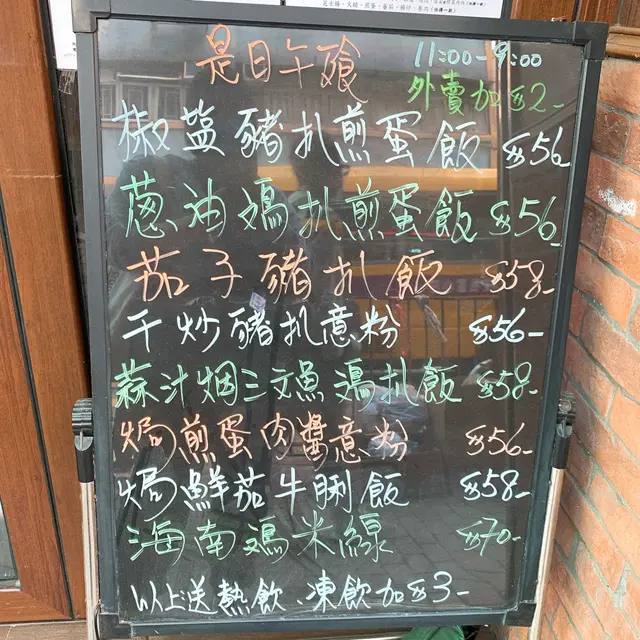 是日午飱
11:00-9:00
外賣加$2-
椒盐豬扒煎蛋飯 $56
葱油鳮扒煎蛋飯 $56
茄子豬扒飯 $58-
干炒豬扒意粉 $56-
蒜汁烟三文魚鳮扒飯 $58-
焗煎蛋肉醬意粉 $56-
焗鮮茄牛脷飯 $58-
海南鳮米線 $70-
以上送熱飲、凍飲加$3-